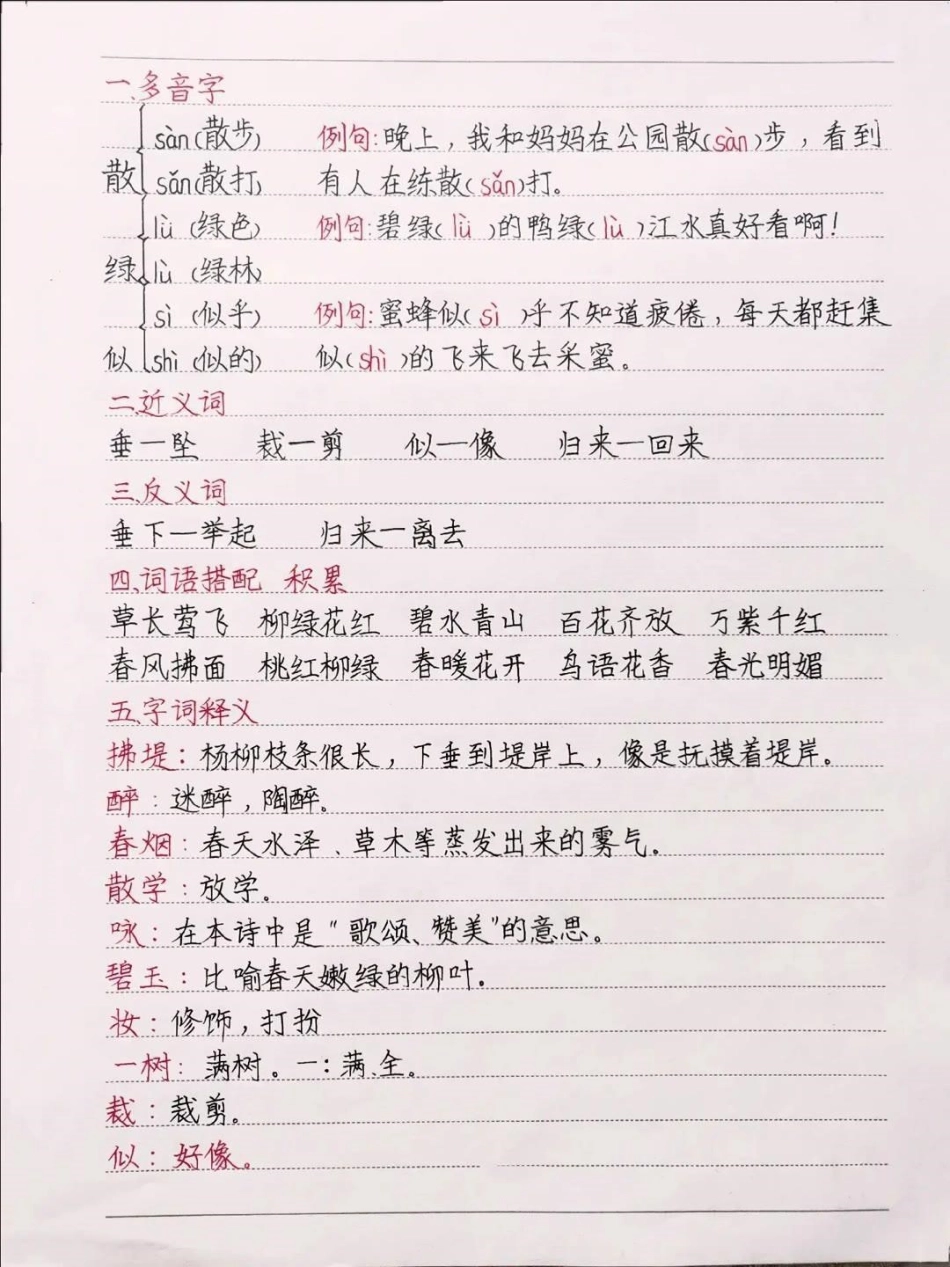 一、多音字
sàn(散步) 例句:晚上,我和妈妈在公园散(sàn)步,看到
散 sǎn(散打) 有人在练散(sǎn)打。
lǜ (绿色) 例句:碧绿(lǜ)的鸭绿(lù)江水真好看啊!
绿 lù (绿林)
sì (似乎) 例句:蜜蜂似(sì)乎不知道疲倦,每天都赶集
似 shì (似的) 似(shì)的飞来飞去采蜜。
二、近义词
垂—坠 裁—剪 似—像 归来—回来
三、反义词
垂下—举起 归来—离去
四、词语搭配 积累
草长莺飞 柳绿花红 碧水青山 百花齐放 万紫千红
春风拂面 桃红柳绿 春暖花开 鸟语花香 春光明媚
五、字词释义
拂堤:杨柳枝条很长,下垂到堤岸上,像是抚摸着堤岸。
醉:迷醉,陶醉。
春烟:春天水泽、草木等蒸发出来的雾气。
散学:放学。
咏:在本诗中是“歌颂、赞美”的意思。
碧玉:比喻春天嫩绿的柳叶。
妆:修饰,打扮
一树:满树。一:满、全。
裁:裁剪。
似:好像。